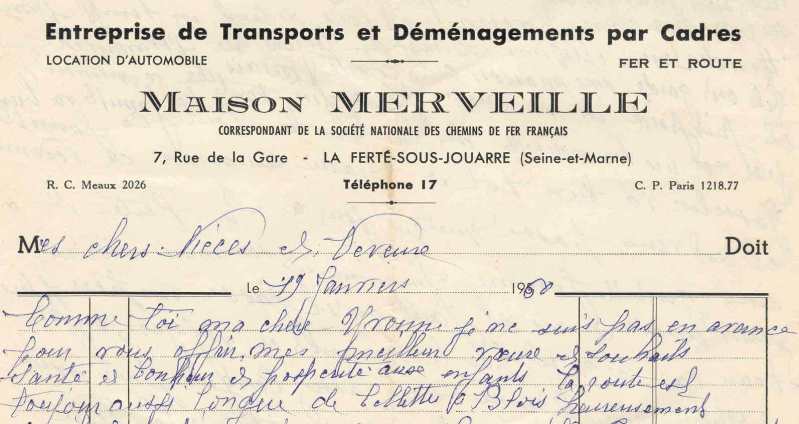 Entreprise de Transports et Déménagements par Cadres
LOCATION D'AUTOMOBILE FER ET ROUTE
MAISON MERVEILLE
CORRESPONDANT DE LA SOCIÉTÉ NATIONALE DES CHEMINS DE FER FRANÇAIS
7, Rue de la Gare - LA FERTÉ-SOUS-JOUARRE (Seine-et-Marne)
R. C. Meaux 2026 Téléphone 17 C. P. Paris 1218.77
Mes chers Nièces et Neveux Doit
Le 19 Janvier 1960
Comme toi ma chère Yvonne je ne suis pas en avance
pour vous offrir mes meilleur vœux et souhaits
Santé et bonheur et prosperité aux enfants la route est
toujours aussi longue de à Blois heureusement